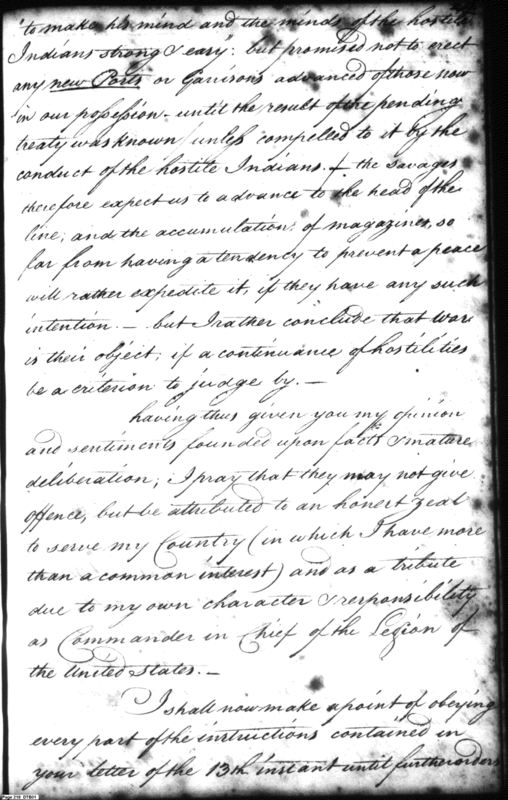 "to make his mind and the minds of the hostile
Indians strong & easy": but promised not to erect
any new Posts or Garrisons advanced of those now
in our possession - until the result of the pending
treaty was known, unless compelled to it by the
conduct of the hostile Indians. + the savages
therefore expect us to advance to the head of the
line; and the accumulation of magazines, so
far from having a tendency to prevent a peace,
will rather expedite it, if they have any such
intention. - but I rather conclude that War
is their object; if a continuance of hostilities
be a criterion to judge by. -
having thus given you my opinion
and sentiments founded upon facts & mature
deliberation; I pray that they may not give
offence, but be attributed to an honest zeal
to serve my Country (in which I have more
than a common interest) and as a tribute
due to my own character & responsibility
as Commander in Chief of the Legion of
the United States. -
I shall now make a point of obeying
every part of the instructions contained in
your letter of the 13th instant until further orders